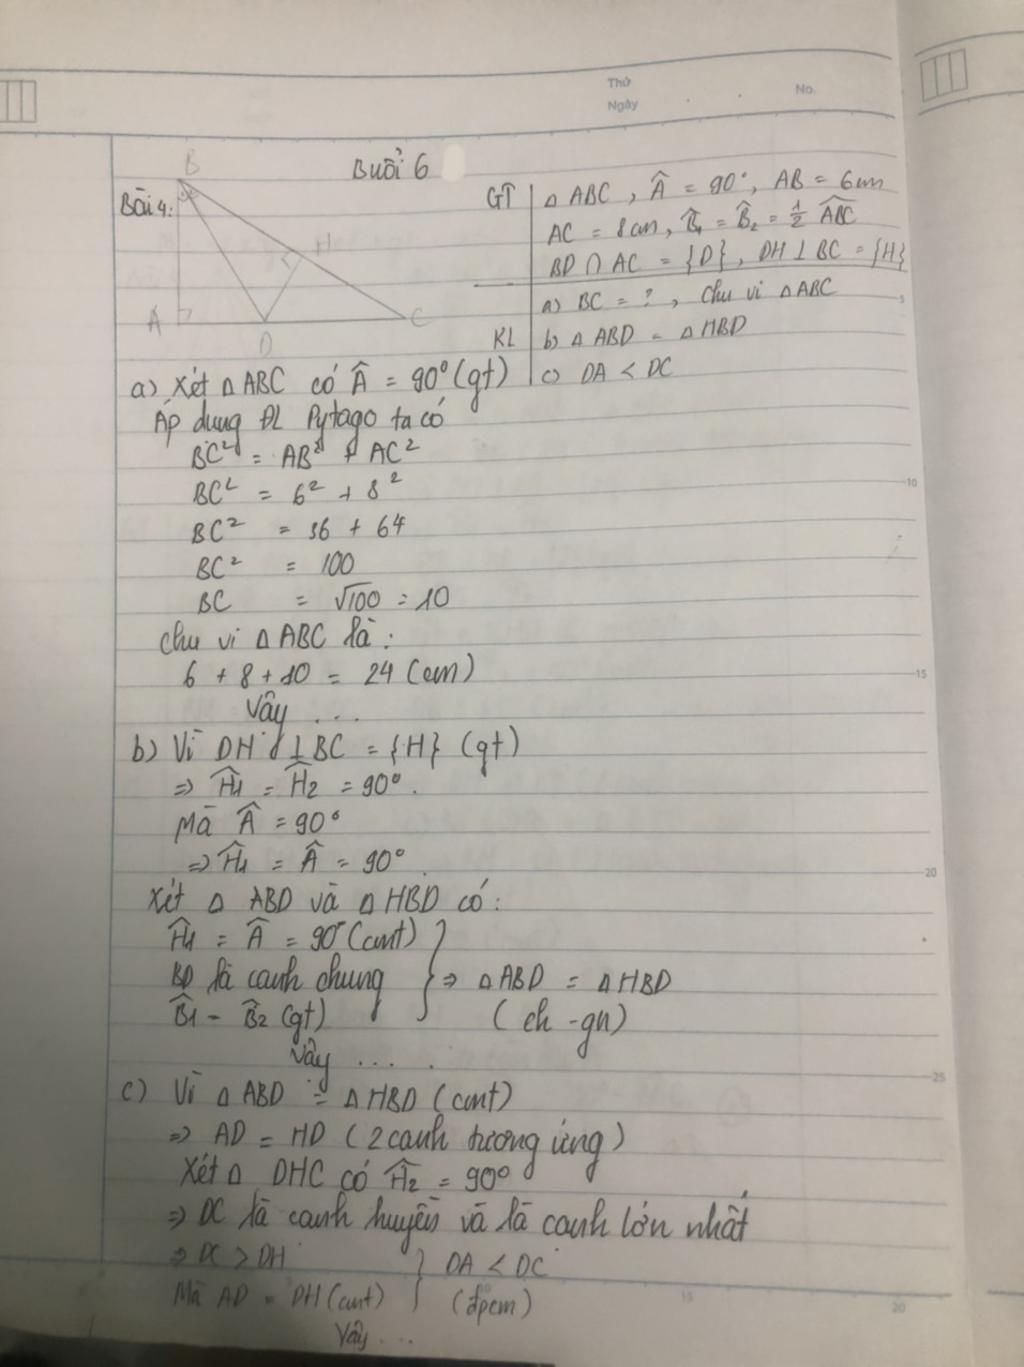 Thứ
Ngày
No.
Buổi 6
Bài 4:
B
H
A
D
C
GT
Δ ABC, Â = 90°, AB = 6cm
AC = 8cm, B̂1 = B̂2 = 1/2 ABC
BD ∩ AC = {D}, DH ⊥ BC = {H}
KL
a) BC = ?, Chu vi Δ ABC
b) Δ ABD = Δ HBD
c) DA < DC
a) Xét Δ ABC có Â = 90° (gt)
Áp dụng ĐL Pytago ta có
BC² = AB² + AC²
BC² = 6² + 8²
BC² = 36 + 64
BC² = 100
BC = √100 = 10
Chu vi Δ ABC là:
6 + 8 + 10 = 24 (cm)
Vậy ...
b) Vì DH ⊥ BC = {H} (gt)
=> Ĥ1 = Ĥ2 = 90°.
Mà Â = 90°
=> Ĥ1 = Â = 90°
Xét Δ ABD và Δ HBD có:
Ĥ1 = Â = 90° (cmt)
BD là cạnh chung } => Δ ABD = Δ HBD
B̂1 = B̂2 (gt) (ch - gn)
Vậy ...
c) Vì Δ ABD = Δ HBD (cmt)
=> AD = HD (2 cạnh tương ứng)
Xét Δ DHC có Ĥ2 = 90°
=> DC là cạnh huyền và là cạnh lớn nhất
=> DC > DH } DA < DC
Mà AD = DH (cmt) (đpcm)
Vậy ...
5
10
15
20
25
15
20